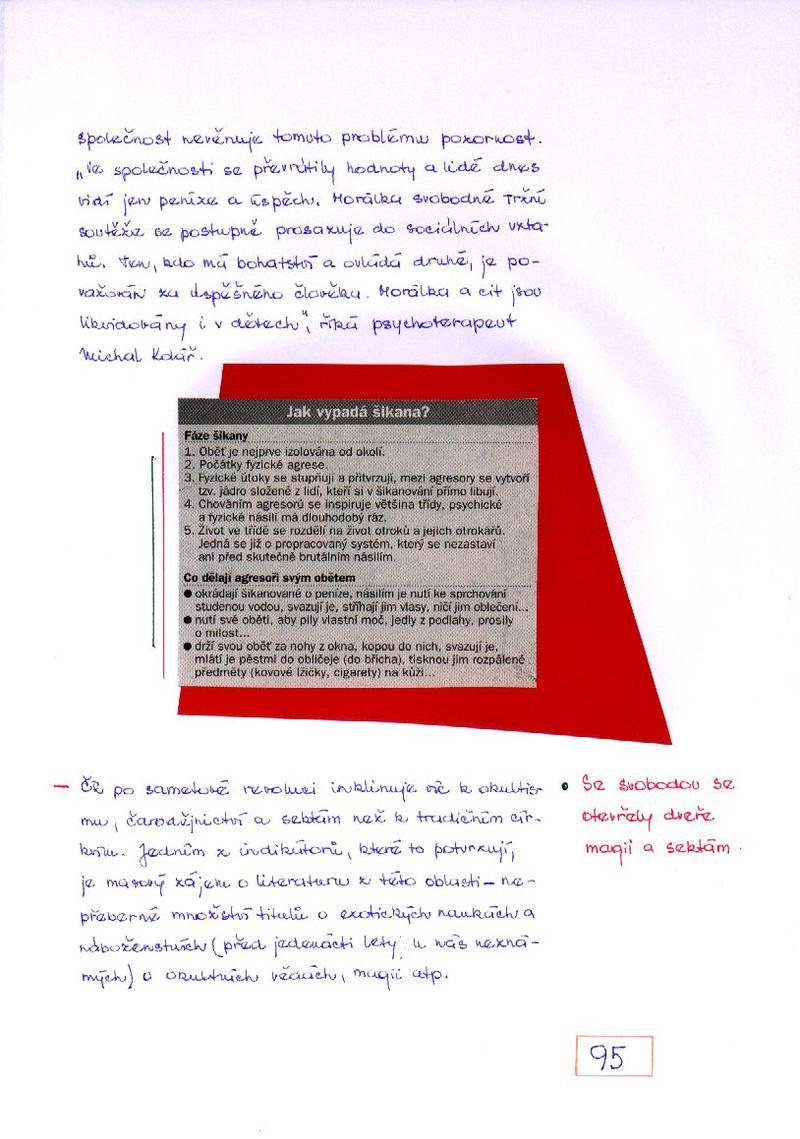 společnost nevěnuje tomuto problému pozornost.
„Ve společnosti se převrátily hodnoty a lidé dnes
vidí jen peníze a úspěch. Morálka svobodné tržní
soutěže se postupně prosazuje do sociálních vzta-
hů. Ten, kdo má bohatství a ovládá druhé, je po-
važován za úspěšného člověka. Morálka a cit jsou
likvidovány i v dětech“, říká psychoterapeut
Michal Kolář.
Jak vypadá šikana?
Fáze šikany
1. Oběť je nejprve izolována od okolí.
2. Počátky fyzické agrese.
3. Fyzické útoky se stupňují a přitvrzují, mezi agresory se vytvoří
tzv. jádro složené z lidí, kteří si v šikanování přímo libují.
4. Chováním agresorů se inspiruje většina třídy, psychické
a fyzické násilí má dlouhodobý ráz.
5. Život ve třídě se rozdělí na život otroků a jejich otrokářů.
Jedná se již o propracovaný systém, který se nezastaví
ani před skutečně brutálním násilím.
Co dělají agresoři svým obětem
● okrádají šikanované o peníze, násilím je nutí ke sprchování
studenou vodou, svazují je, stříhají jim vlasy, ničí jim oblečení...
● nutí své oběti, aby pily vlastní moč, jedly z podlahy, prosily
o milost...
● drží svou oběť za nohy z okna, kopou do nich, svazují je,
mlátí je pěstmi do obličeje (do břicha), tisknou jim rozpálené
předměty (kovové lžičky, cigarety) na kůži...
– ČR po sametové revoluci inklinuje víc k okultis-
mu, čarodějnictví a sektám než k tradičním cír-
kvím. Jedním z indikátorů, které to potvrzují,
je masový zájem o literaturu z této oblasti – ne-
přeberné množství titulů o exotických naukách a
náboženstvích (před jedenácti lety u nás nezná-
mých) o okultních vědách, magii atp.
• Se svobodou se
otevřely dveře
magii a sektám.
95